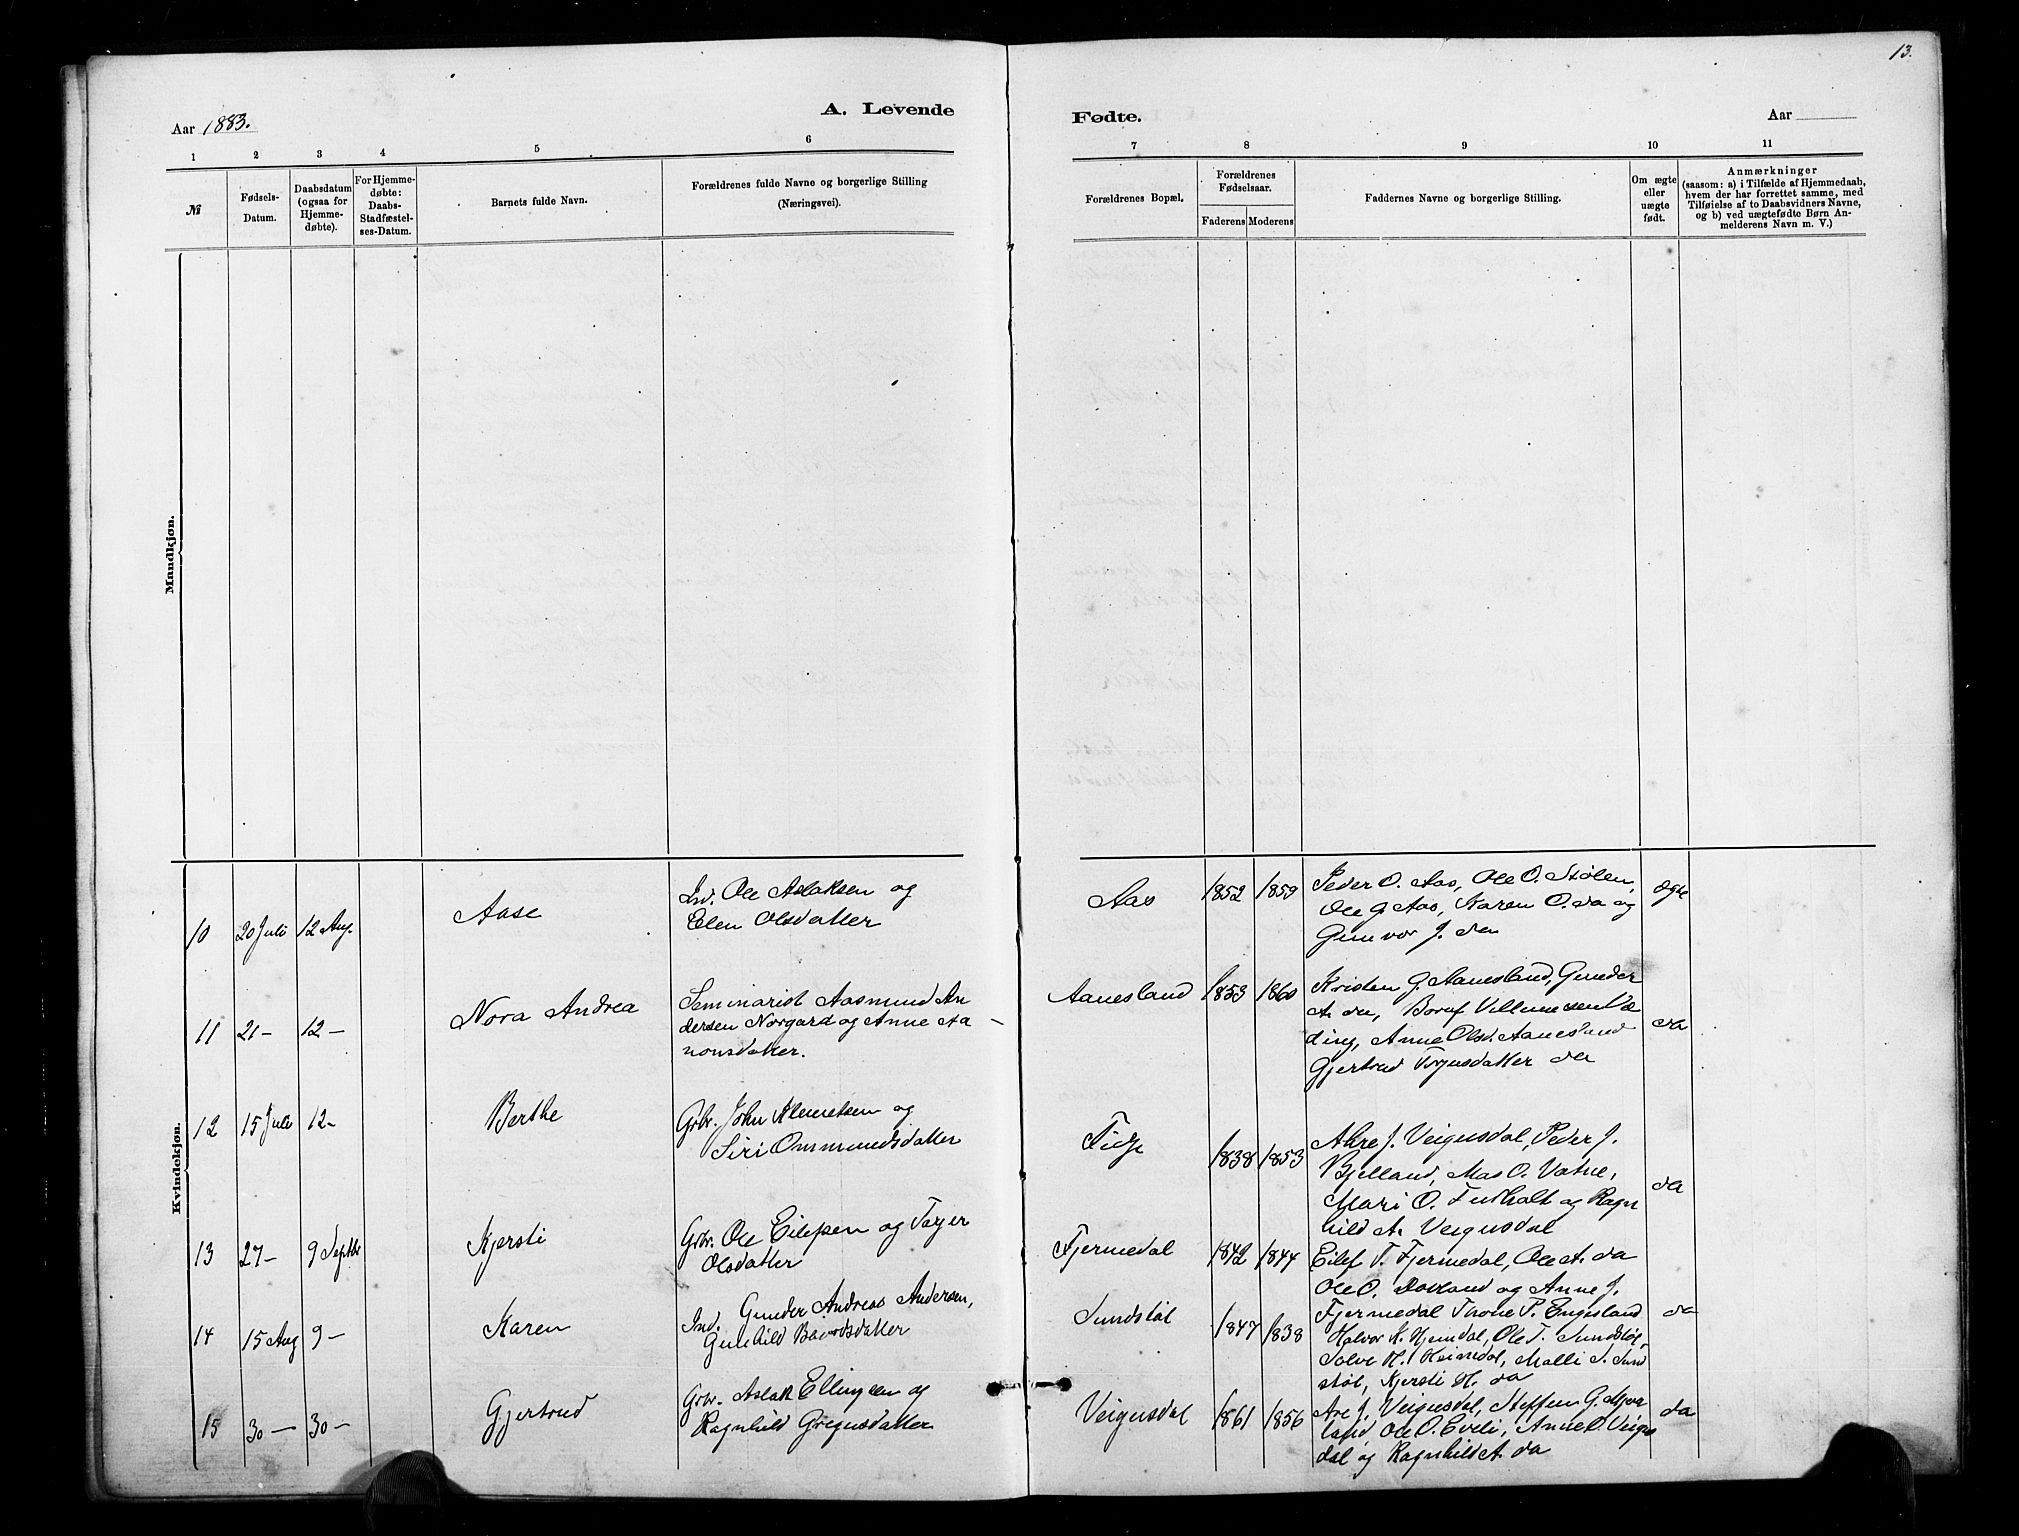 13.
A. Levende
Fødte.
Aar 1883.
Aar
1 2 3 4 5 6
7 8 9 10 11
№
Fødsels-
Datum.
Daabsdatum
(ogsaa for
Hjemme-
døbte).
For Hjemme-
døbte:
Daabs-
Stadfæstel-
ses-Datum.
Barnets fulde Navn.
Forældrenes fulde Navne og borgerlige Stilling
(Næringsvei).
Forældrenes Bopæl.
Forældrenes
Fødselsaar.
Faderens Moderens
Faddernes Navne og borgerlige Stilling.
Om ægte
eller
uægte
født.
Anmærkninger
(saasom: a) i Tilfælde af Hjemmedaab,
hvem der har forrettet samme, med
Tilføielse af to Daabsvidners Navne,
og b) ved uægtefødte Børn An-
melderens Navn m. V.)
Mandkjøn.
Kvindekjøn.
10 20 Juli 12 Aug.
Aase
Ind. Ole Aslaksen og
Elen Olsdatter
Aas
1852 1859
Peder O. Aas, Ole O. Stølen,
Ole G. Aas, Karen O. da og
Gunvor J. da
ægte
11 21 – 12 –
Nora Andrea
Seminarist Aasmund An
dersen Norgard og Anne Aa
nonsdatter.
Aanesland
1853 1860
Kristen G. Aanesland, Gunder
A. da,
ding, Anne Olsd. Aanesland
Gjertrud Torjusdatter da
da
12 15 Juli 12 –
Berthe
Gbr. John Klemetsen og
Siri Ommundsdatter
Tidje
1838 1853
Aare J. Veigusdal, Peder J.
Bjelland, Mas O. Vatne,
Mari O. og Ragn
hild A. Veigusdal
da
13 27 – 9 Septbr
Kjersti
Gbr. Ole Eilefsen og Torjer
Olsdatter
Fjermedal
1842 1844
Eilef T. Fjermedal, Ole A. da
Ole O. Dovland og Anne J.
Fjermedal Thone P. Engesland
da
14 15 Aug 9 –
Karen
Ind. Gunder Andreas Andersen,
Gunhild Baardsdatter
Sundstøl
1847 1838
Halvor K. Hjemdal, Ole T. Sundstøl,
Salve H. Heimdal, Malli S. Sund
støl, Kjersti H. da
15 30 – 30 –
Gjertrud
Gbr. Aslak Ellingsen og
Ragnhild Gregusdatter
Veigusdal
1861 1856
Are J. Veigusdal, Steffen G. Mjaa
land Ole O. Eveli, Anne O. Veigus
dal og Ragnhild A. da
da